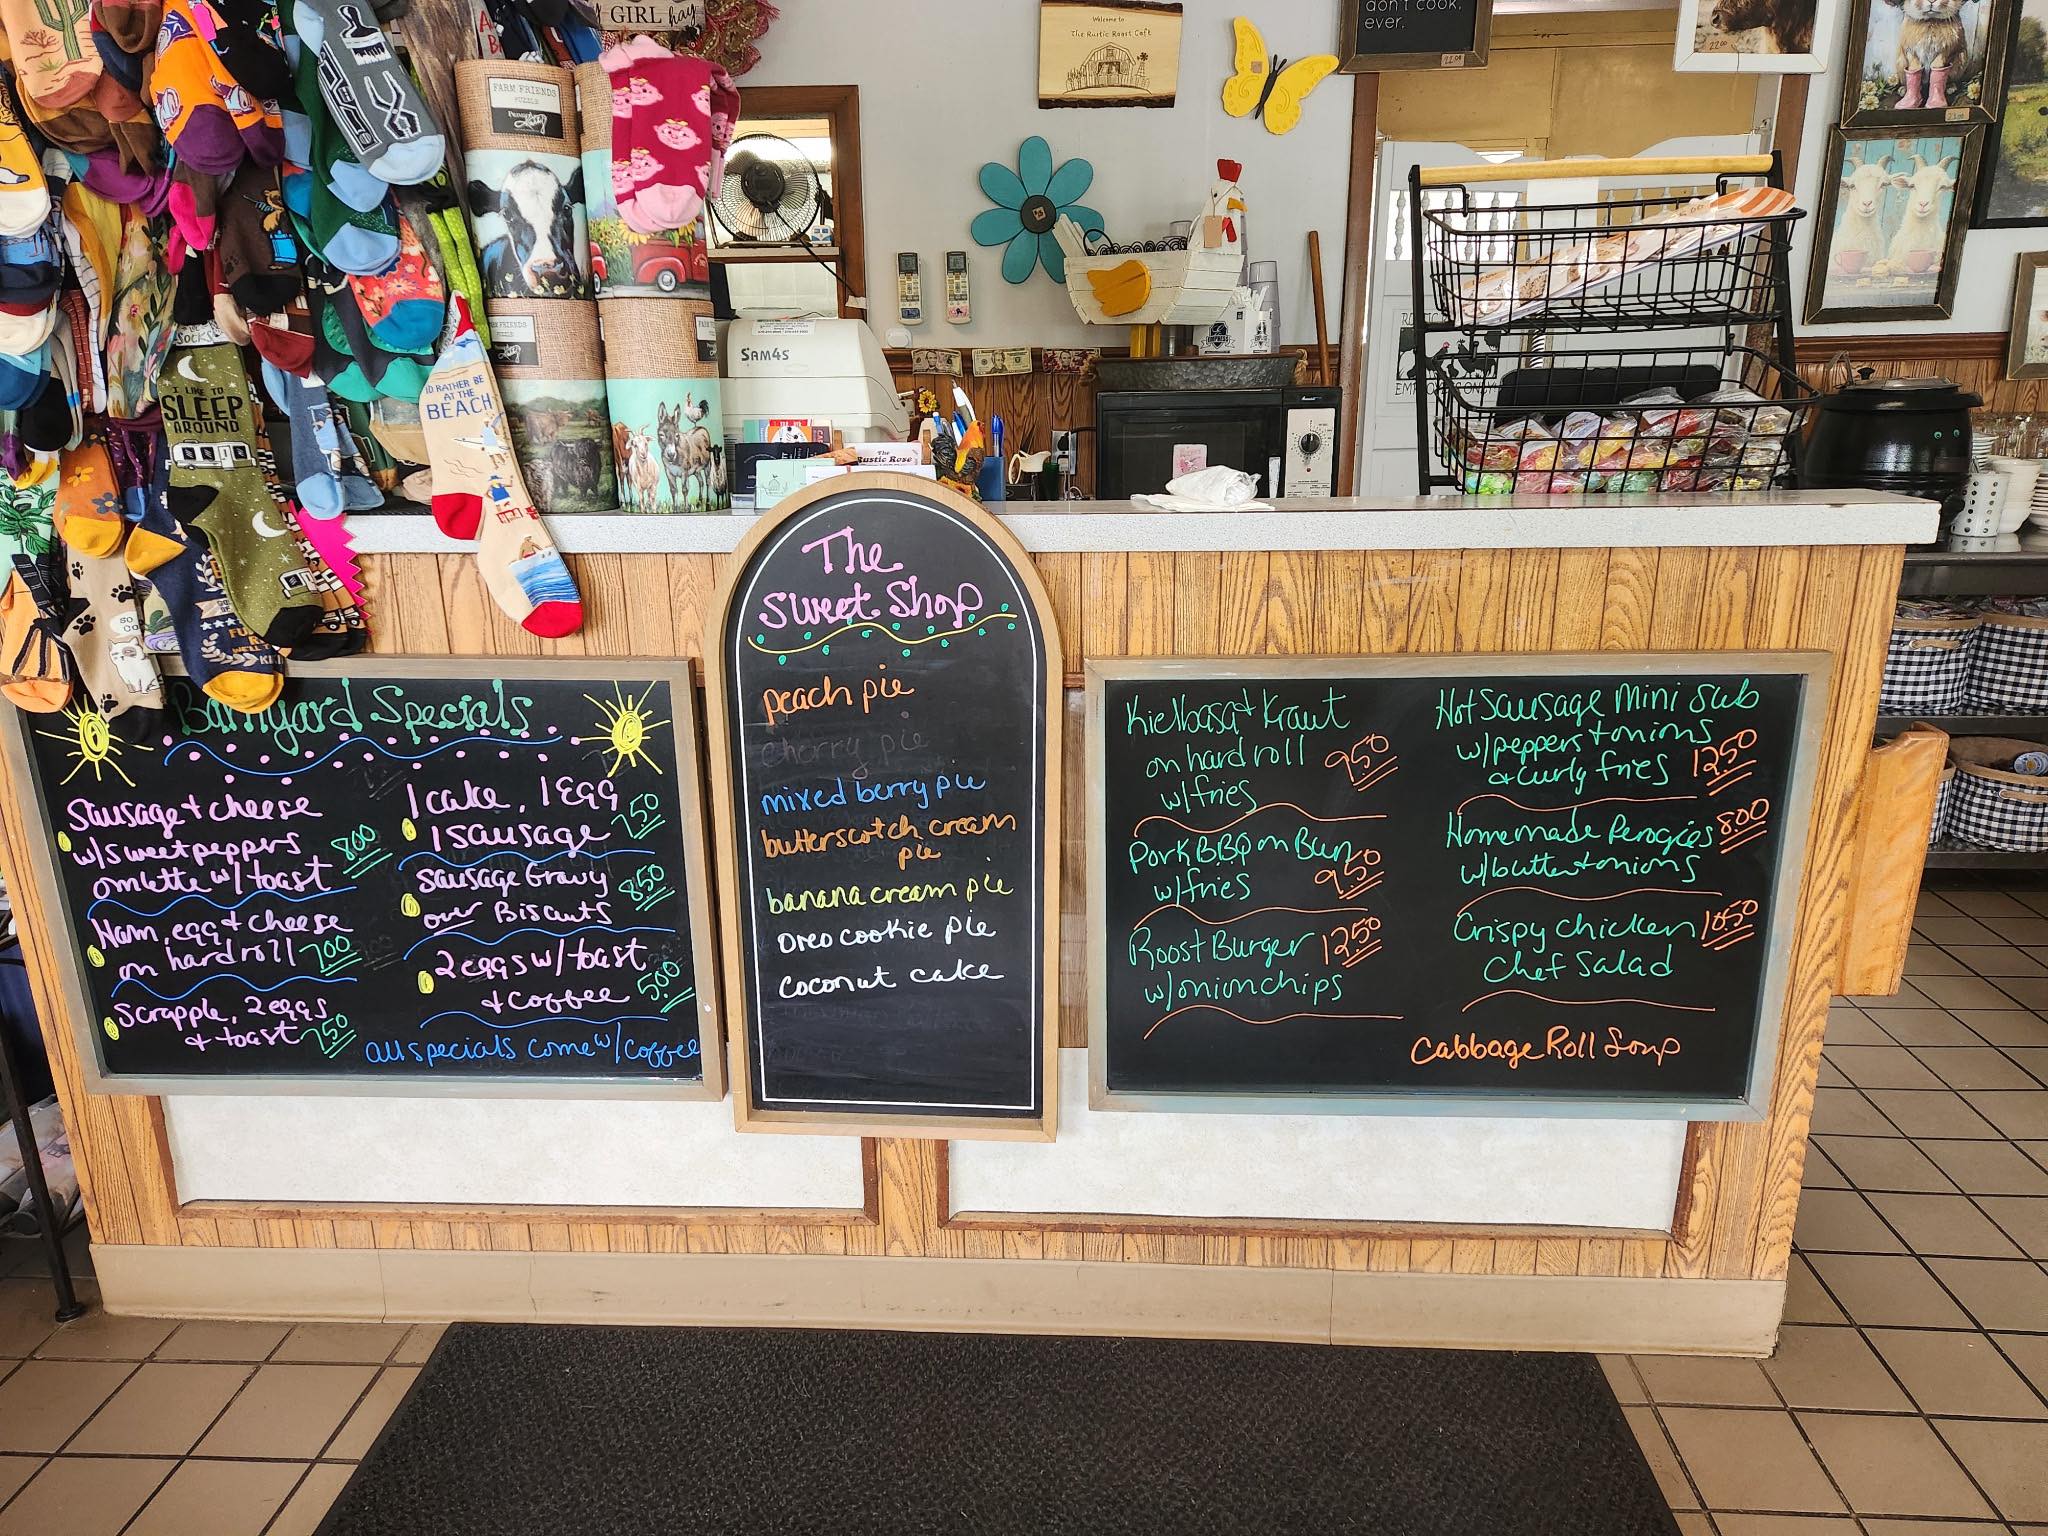 GIRL hay
don't cook.
ever.
22.00
22.00
Welcome to
The Rustic Roast Cafe
FARM FRIENDS
PUZZLE
FARM FRIENDS
SAM4S
I LIKE TO
SLEEP
AROUND
I'D RATHER BE
AT THE
BEACH
The
Rustic Rose
The
Sweet Shop
peach pie
cherry pie
mixed berry pie
butterscotch cream
pie
banana cream pie
oreo cookie pie
coconut cake
Barnyard Specials
Sausage + cheese
w/sweet peppers
omlette w/toast 8.00
Ham, egg + cheese
on hard roll 7.00
Scrapple, 2 eggs
+ toast 7.50
1 cake, 1 EGG
1 sausage 7.50
Sausage Gravy
over Biscuits 8.50
2 eggs w/toast
+ coffee 5.00
all specials come w/coffee
Kielbasa + Kraut
on hard roll
w/fries 9.50
Pork BBQ on Bun
w/fries 9.50
Roost Burger 12.50
w/onion chips
Hot Sausage Mini Sub
w/peppers + onions
+ curly fries 12.50
Homemade Perogies 8.00
w/butter + onions
Crispy Chicken 10.50
Chef Salad
Cabbage Roll Soup